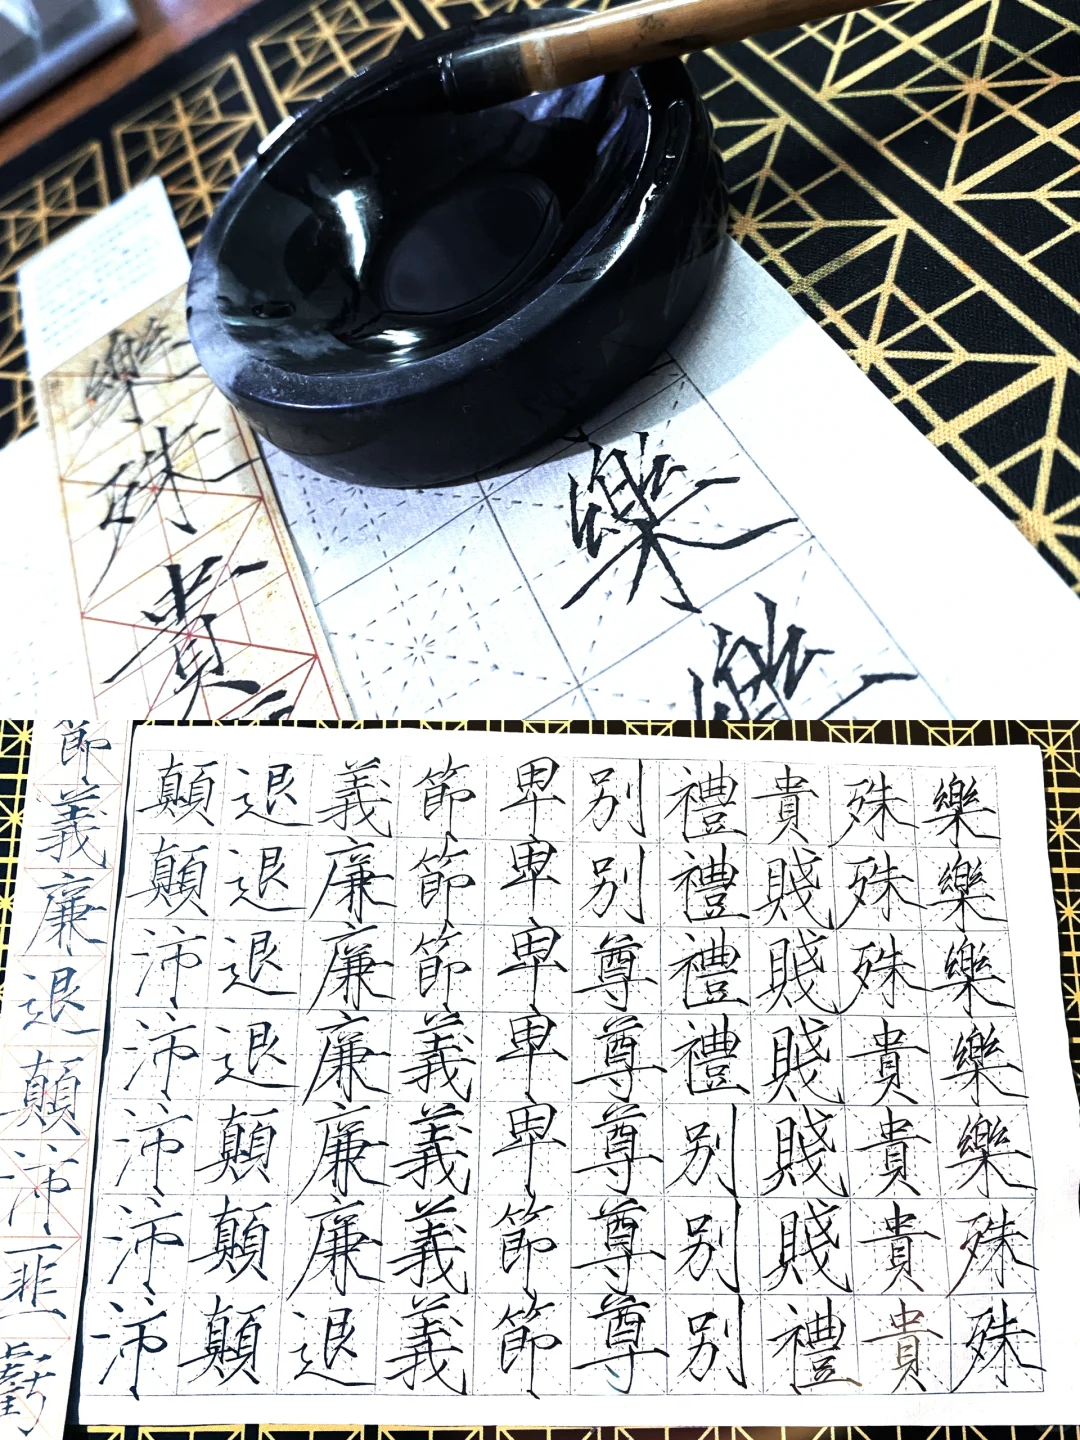 樂
樂
樂殊貴
樂樂樂樂樂殊殊
殊殊殊貴貴貴貴
貴賤賤賤賤賤禮
禮禮禮禮别别别
别别尊尊尊尊尊
卑卑卑卑卑節節
節節節義義義義
義廉廉廉廉廉退
退退退退顛顛顛
顛顛沛沛沛沛沛
節義廉退顛沛匪虧